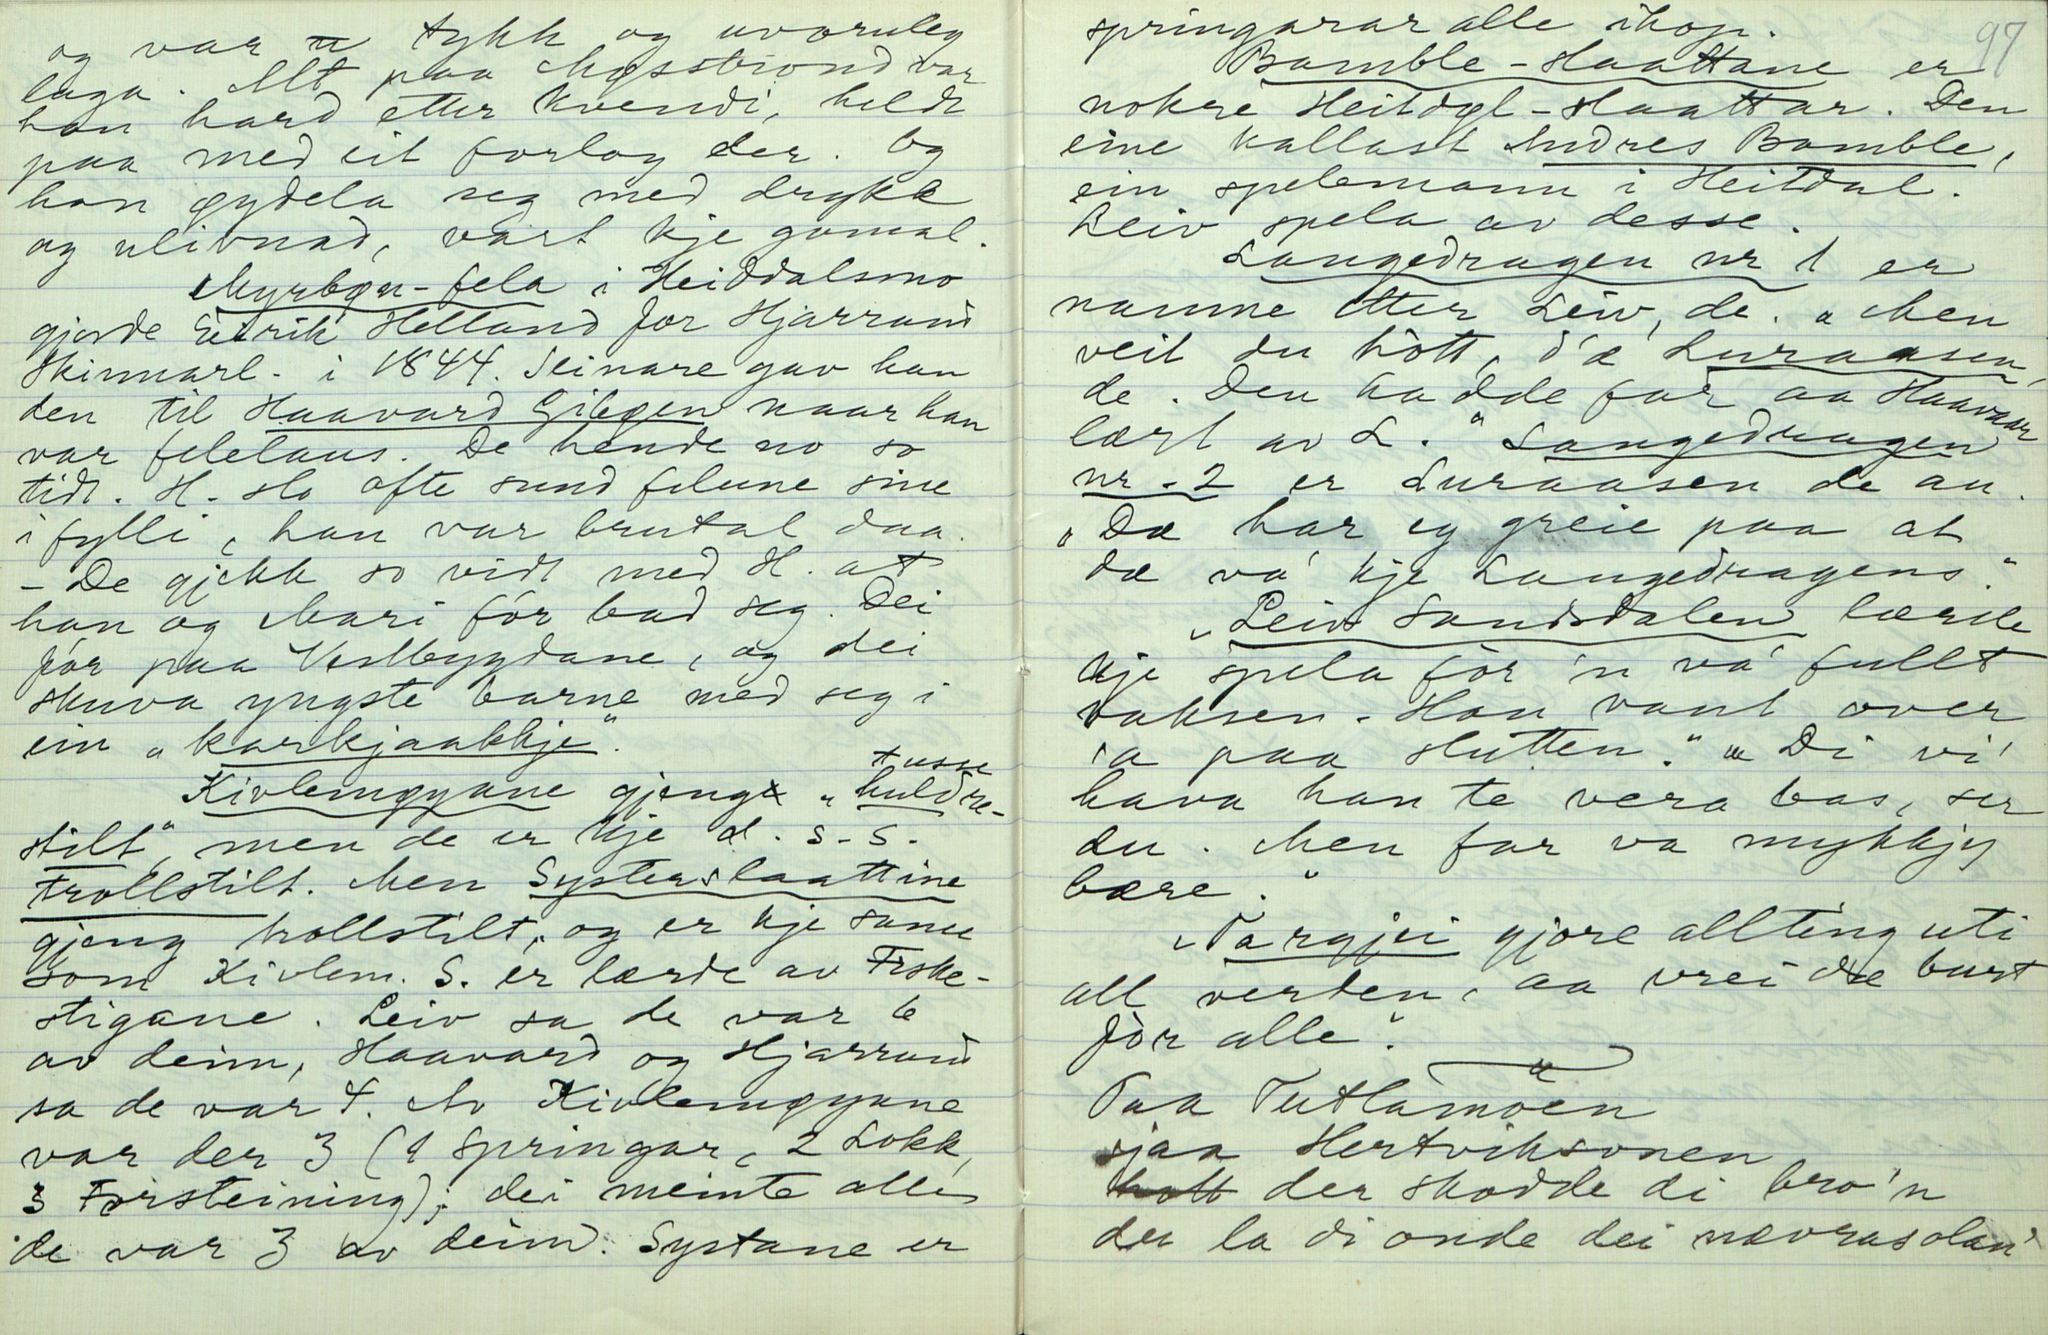 og var u tykk og uvoruleg
laga. Alt paa Møsstrond var
han hard etter kvendi, heldt
paa med eit forlag der. Og
han øydela seg med drykk
og ulivnad, vart kje gamal.
Myrbøn-fela i Heiddalsmo
gjorde Eirik Helland for Hjarrand
Skinnarl. i 1844. Seinare gav han
den til Haavard Gibøen naar han
var felelaus. De hende no so
tidt. H. slo ofte sund felune sine
i fylli, han var brutal daa.
- De gjekk so vidt med H. at
han og Mari fór bad seg. Dei
fór paa Vestbygdane, og dei
skuva yngste barne med seg i
ein „karkjaakkje".
tusse
Kivlemøyane gjeng „huldre-
stilt", men de er kje d. s. s.
trollstilt. Men Systerslaattine
gjeng trollstilt, og er kje same
som Kivlem. S. er lærde av Fiske-
stigane. Leiv sa de var 6
av deim, Haavard og Hjarrand
sa de var 4. Av Kivlemøyane
var der 3 (1 Springar, 2 Lokk,
3 Forsteining); dei meinte alle
de var 3 av deim. Systane er
97
springarar alle ihop.
Bamble-Haattane er
nokre Heitdøl-Haattar. Den
eine kallast Andres Bamble,
ein spelemann i Heitdal.
Leiv spela av desse.
Langedragen nr 1 er
namne etter Leiv, de. „Men
veit du hòtt, d'æ Luraasen,
de. Den hadde far aa Haavaar
lært av L." Langedragen
nr. 2 er Luraasen de au.
„Dæ har eg greie paa at
dæ va' kje Langedragens."
„Leiv Sandsdalen lærde
kje spela fòr 'n va' fullt
vaksen. Han vant over
'a paa slutten." „Di vi'
hava han te vera bas, ser
du. Men far va mykkjy
bære."
„Targjei gjore allting uti
all verden, aa vrei dæ burt
fòr alle".
Paa Tutlamoen
sjaa Hertviksonen
hott der skodde di bro'n
der la di onde dei nævrasolan'